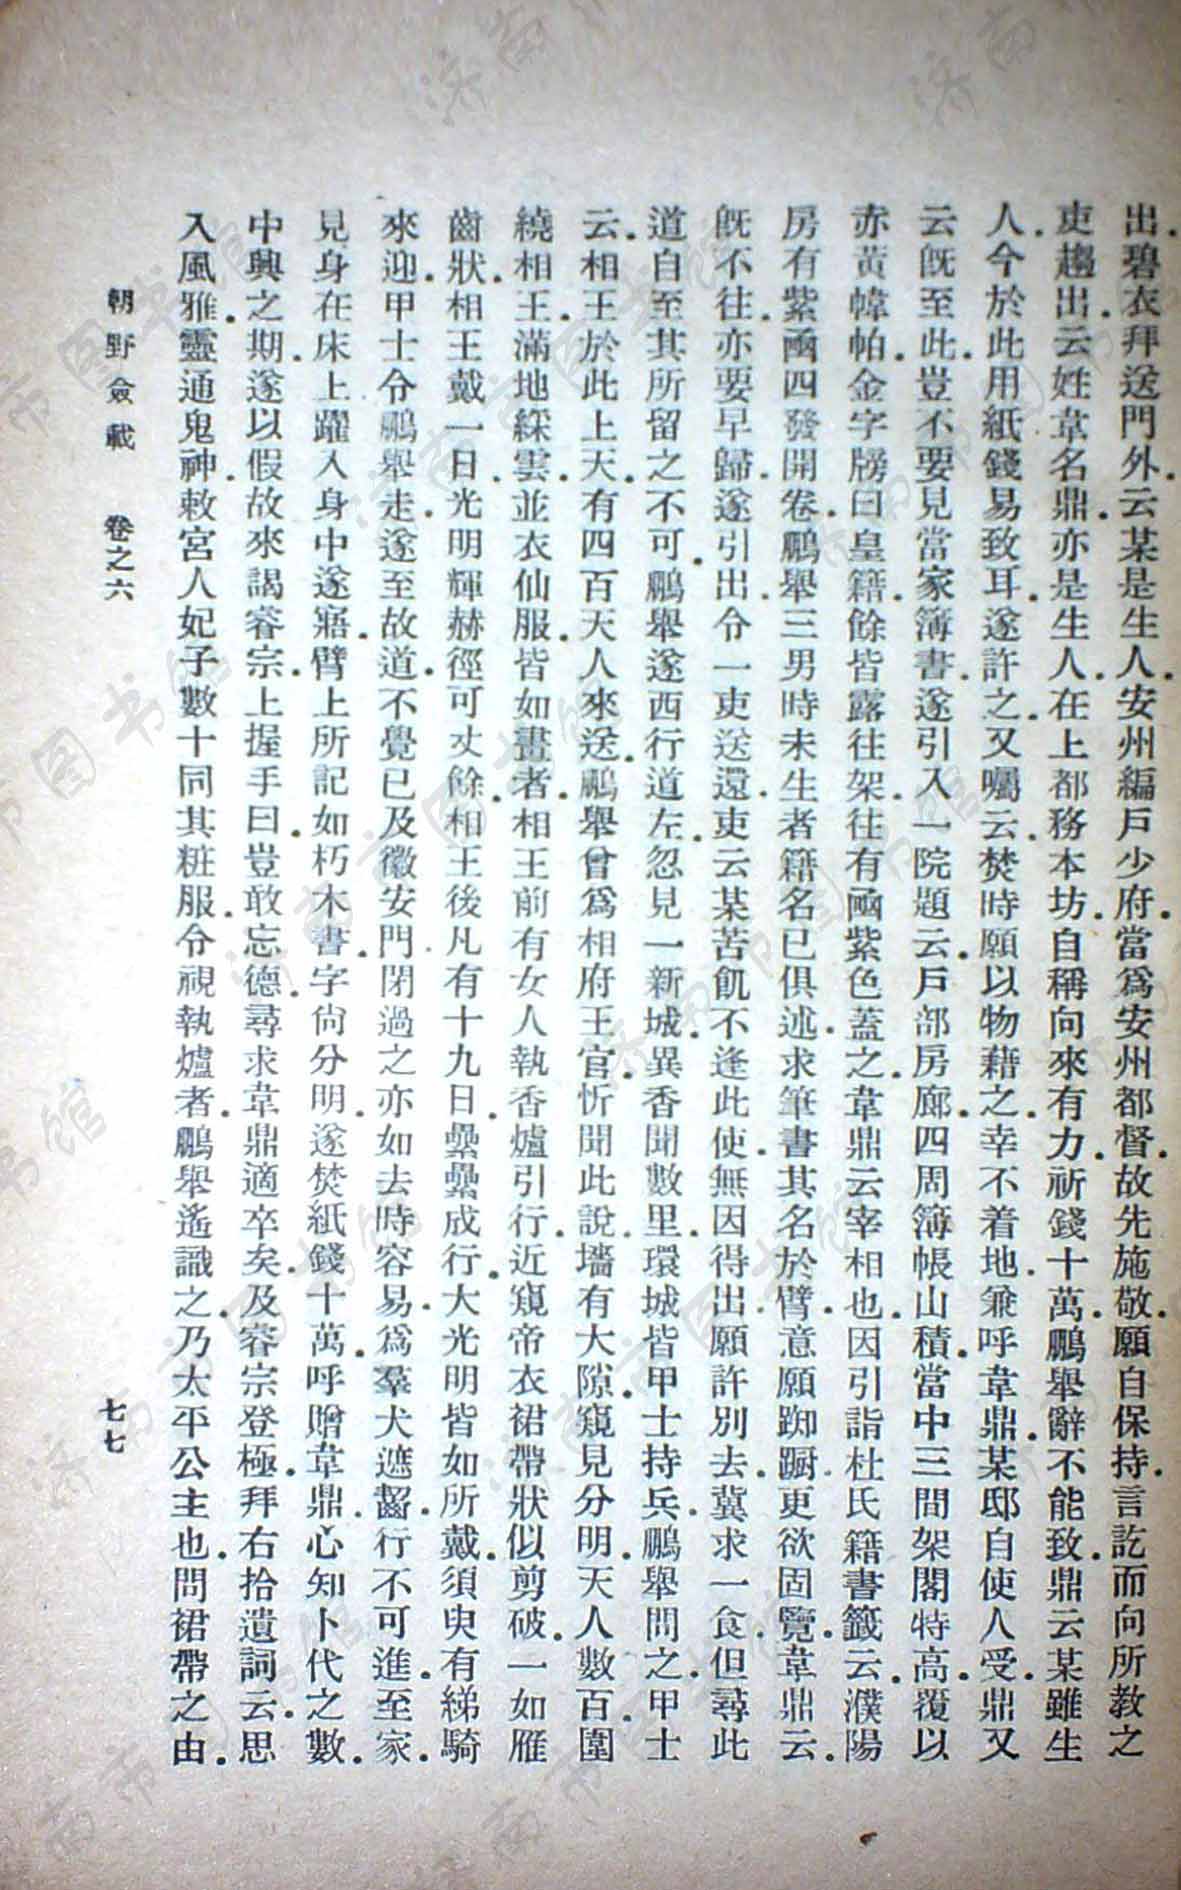 出碧衣拜送門外云某是生人安州編戶少府當爲安州都督故先施敬願自保持言訖而向所教之
吏趨出云姓韋名鼎亦是生人在上都務本坊自稱向來有力祈錢十萬鵬舉辭不能致鼎云某雖生
人今於此用紙錢易致耳遂許之又囑云焚時願以物藉之幸不着地兼呼韋鼎某卽自使人受鼎又
云旣至此豈不要見當家簿書遂引入一院題云戶部房廊四周簿帳山積當中三間架閣特高覆以
赤黃幃帕金字牓曰皇籍餘皆露往架往有凾紫色蓋之韋鼎云宰相也因引詣杜氏籍書籤云濮陽
房有紫凾四發開卷鵬舉三男時未生者籍名已俱述求筆書其名於臂意願踟蹰更欲固覽韋鼎云
旣不往亦要早歸遂引出令一吏送還吏云某苦飢不逢此使無因得出願許別去冀求一食但尋此
道自至其所留之不可鵬舉遂西行道左忽見一新城異香聞數里環城皆甲士持兵鵬舉問之甲士
云相王於此上天有四百天人來送鵬舉曾爲相府王官忻聞此說墻有大隙窺見分明天人數百圍
繞相王滿地綵雲並衣仙服皆如畫者相王前有女人執香爐引行近窺帝衣裙帶狀似剪破一如雁
齒狀相王戴一日光明輝赫徑可丈餘相王後凡有十九日纍纍成行大光明皆如所戴須臾有綈騎
來迎甲士令鵬舉走遂至故道不覺已及徽安門閉過之亦如去時容易爲羣犬遮齧行不可進至家
見身在床上躍入身中遂寤臂上所記如朽木書字尙分明遂焚紙錢十萬呼贈韋鼎心知卜代之數
中興之期遂以假故來謁睿宗上握手曰豈敢忘德尋求韋鼎適卒矣及睿宗登極拜右拾遺詞云思
入風雅靈通鬼神敕宮人妃子數十同其粧服令視執爐者鵬舉遙識之乃太平公主也問裙帶之由
朝野僉載 卷之六 七七